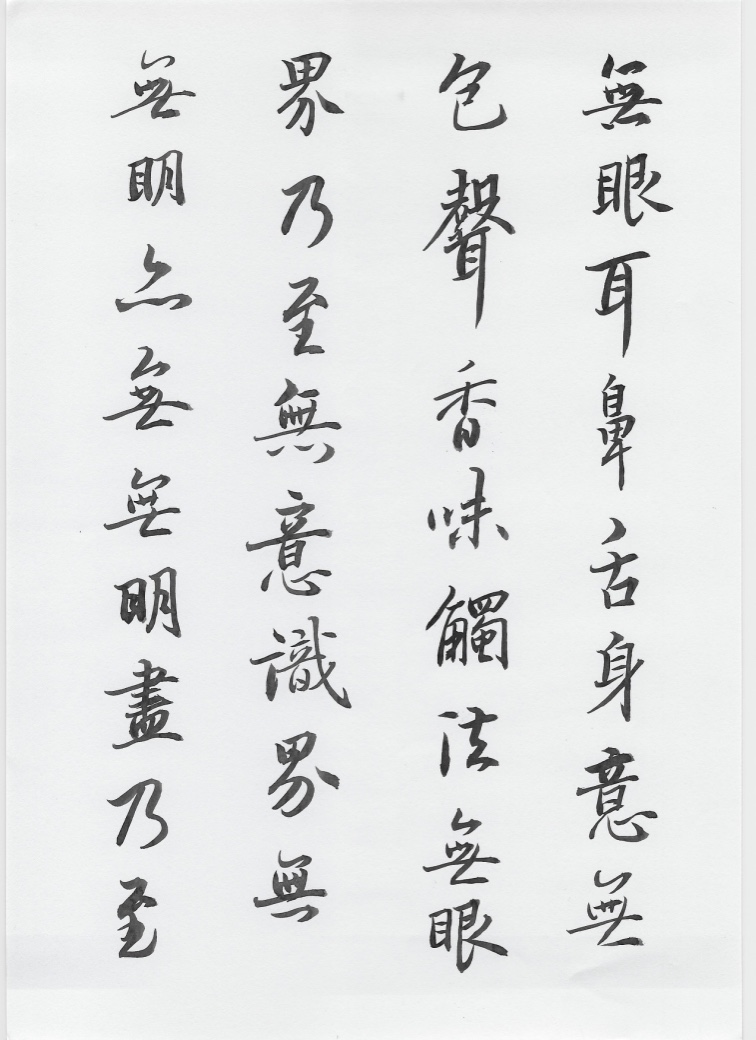 無眼耳鼻舌身意無
色聲香味觸法無眼
界乃至無意識界無
無明亦無無明盡乃至